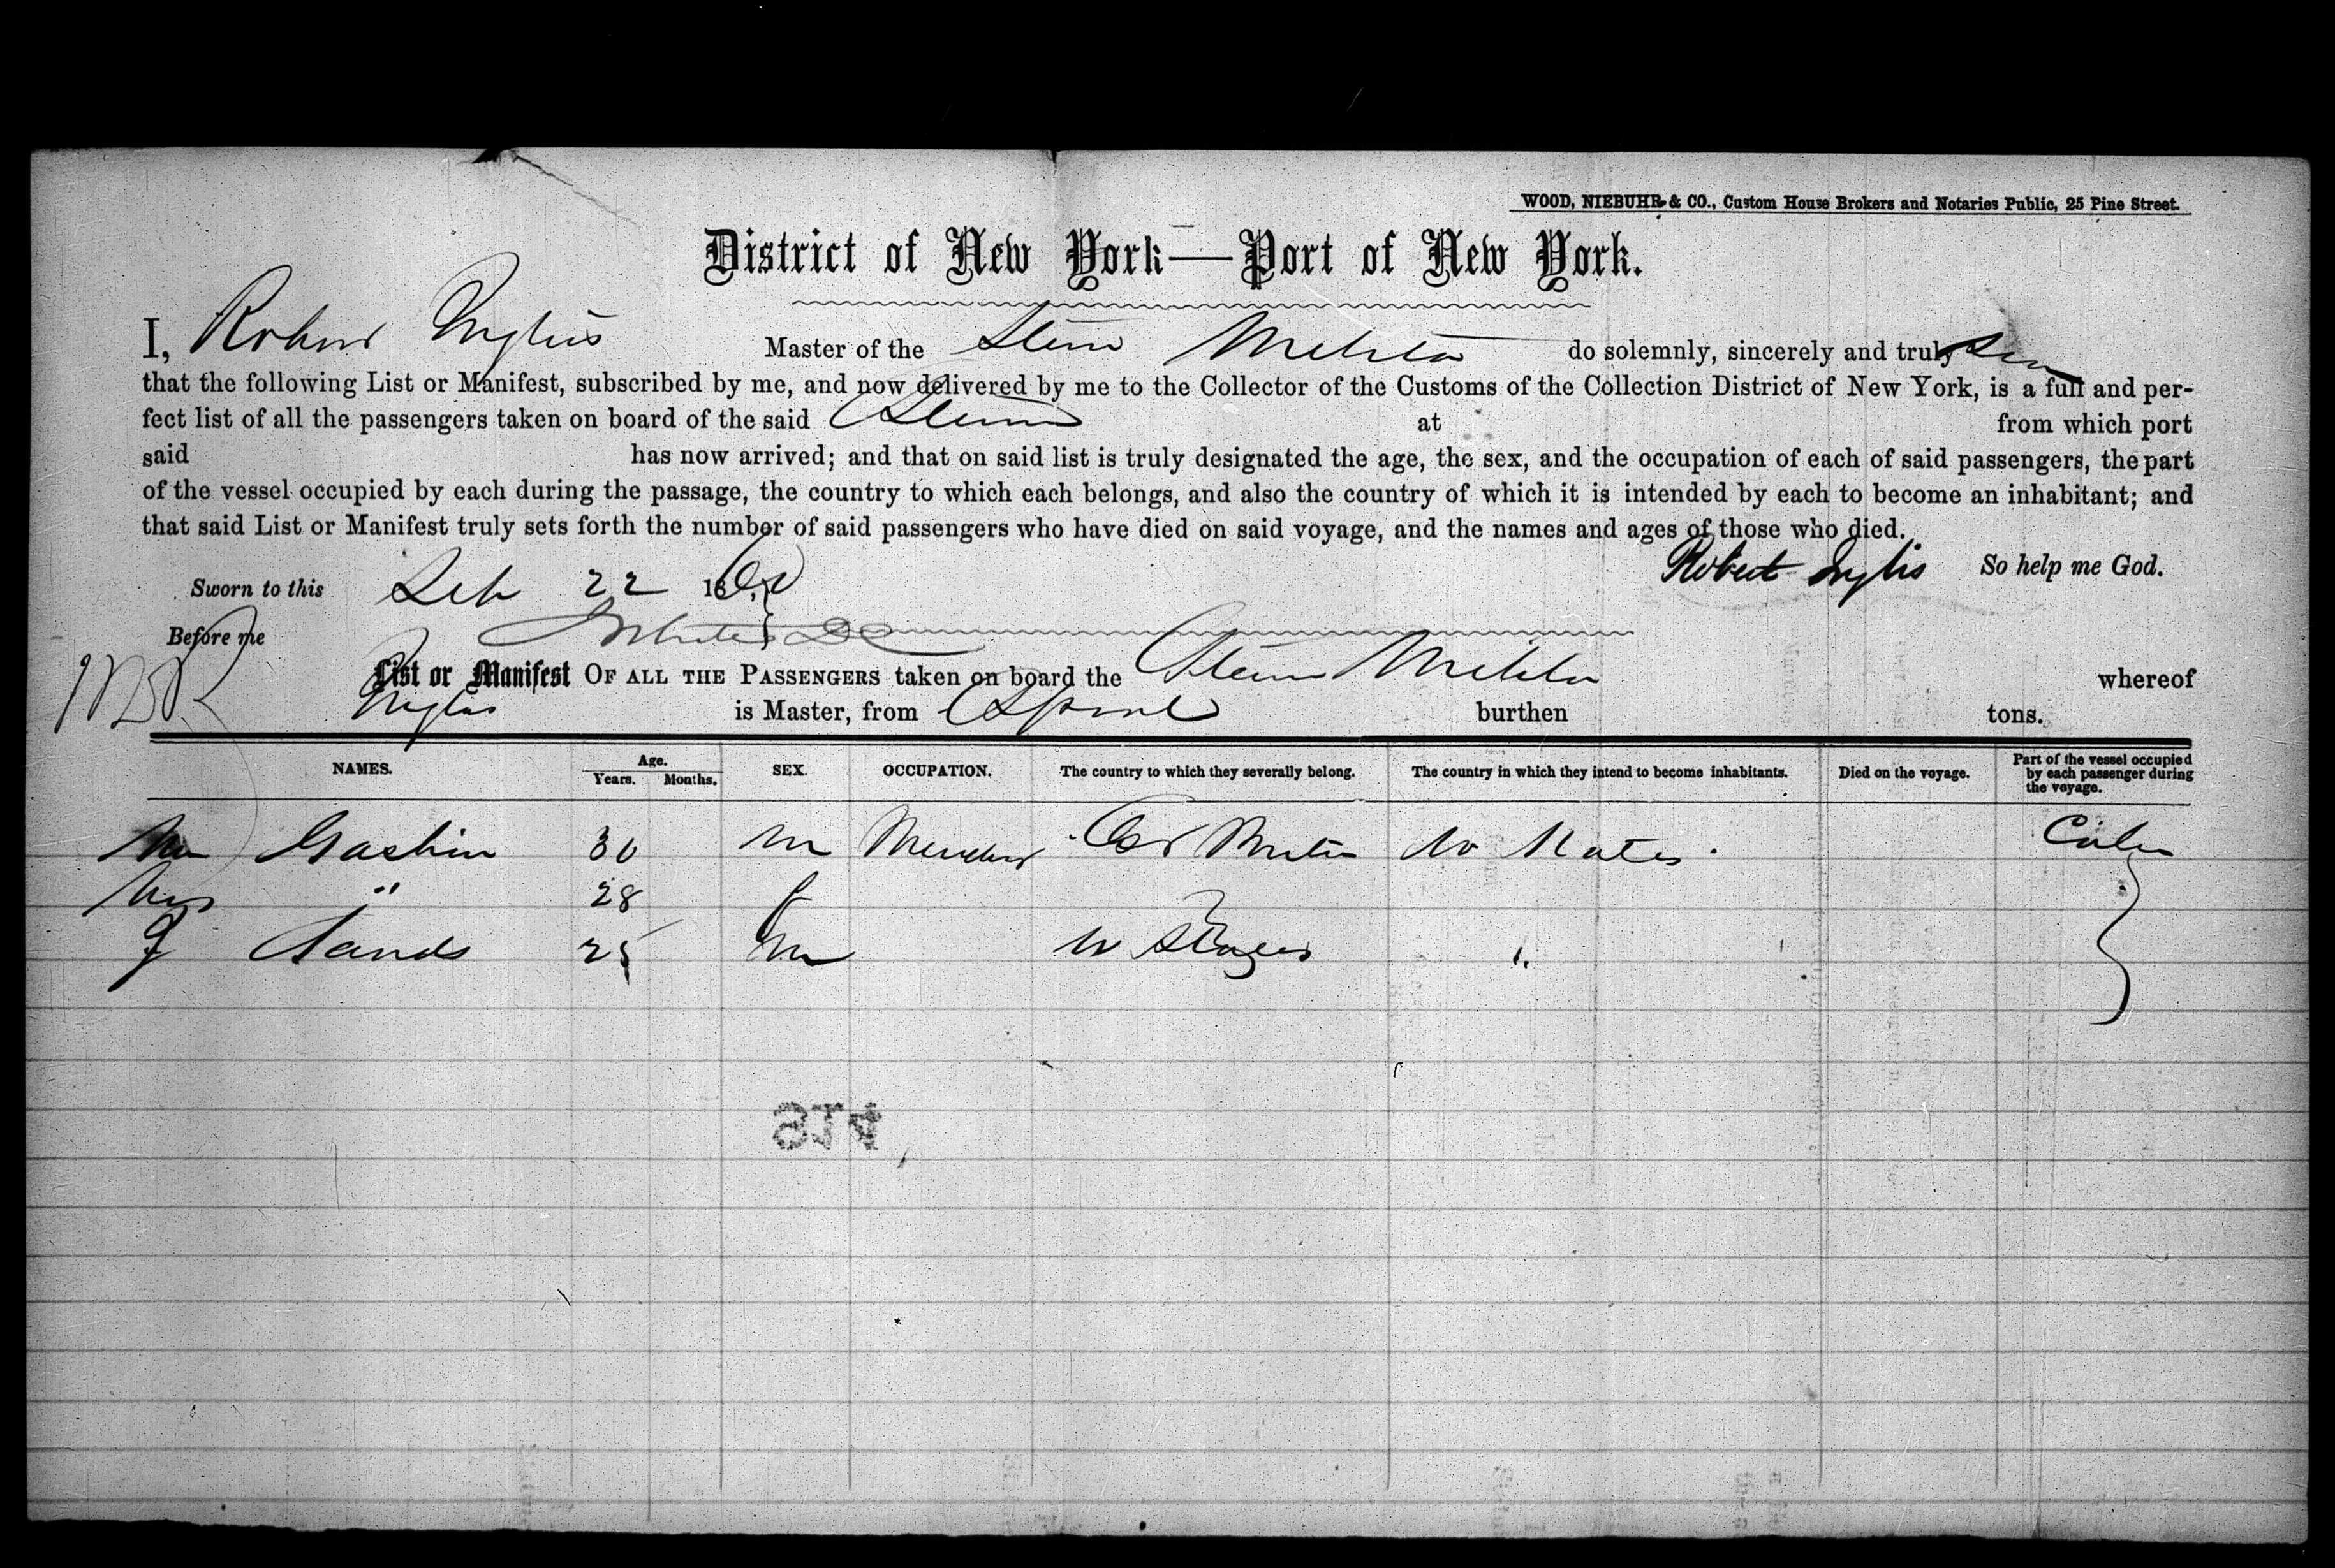 WOOD, NIEBUHR & CO., Custom House Brokers and Notaries Public, 25 Pine Street.
District of New York—Port of New York.
I, Robert Inglis Master of the Steam Melita do solemnly, sincerely and truly
that the following List or Manifest, subscribed by me, and now delivered by me to the Collector of the Customs of the Collection District of New York, is a full and per-
fect list of all the passengers taken on board of the said Steam at from which port
said has now arrived; and that on said list is truly designated the age, the sex, and the occupation of each of said passengers, the part
of the vessel occupied by each during the passage, the country to which each belongs, and also the country of which it is intended by each to become an inhabitant; and
that said List or Manifest truly sets forth the number of said passengers who have died on said voyage, and the names and ages of those who died.
Robert Inglis So help me God.
Sworn to this Feb 22 18
Before me
List or Manifest OF ALL THE PASSENGERS taken on board the Steam Melita whereof
Inglis is Master, from burthen tons.
NAMES. Age. Years. Months. SEX. OCCUPATION. The country to which they severally belong. The country in which they intend to become inhabitants. Died on the voyage. Part of the vessel occupied by each passenger during the voyage.
Mr Gaskin 30 m Gt Britain U States Cabin
Mrs " 28 f
J Sands 25 m U States "
914